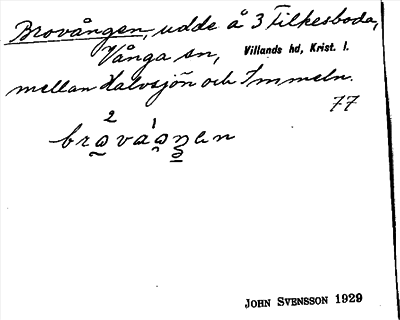 Brovången, udde å 3 Filkesboda,
Vånga sn, Villands hd, Krist. l.
mellan Halvsjön och Immeln.
77
2 1
JOHN SVENSSON 1929